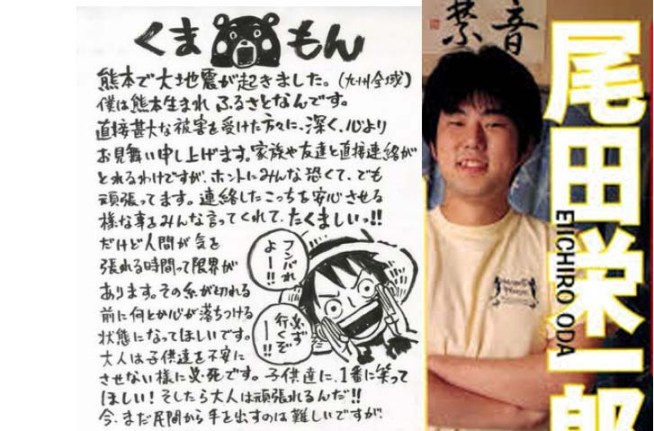 くま もん
熊本で大地震が起きました。(九州全域)
僕は熊本生まれ ふるさとなんです。
直接甚大な被害を受けた方々に、深く、心より
お見舞い申し上げます。家族や友達と直接連絡が
とれるわけですが、ホントにみんな恐くて、でも
頑張ってます。連絡したこっちを安心させる
様な事をみんな言ってくれて、たくましいっ!!
だけど人間が気を
張れる時間って限界が
あります。その糸が切れる
前に何とか心が落ちつける
状態になってほしいです。
大人は子供達を不安に
させない様に必死です。子供達に、1番に笑って
ほしい!そしたら大人は頑張れるんだ!!
今、まだ民間から手を出すのは難しいですが、
フンバれ
よー!!
必ず
行くぞ
ー!!
音
禁
尾田栄一郎
EIICHIRO ODA